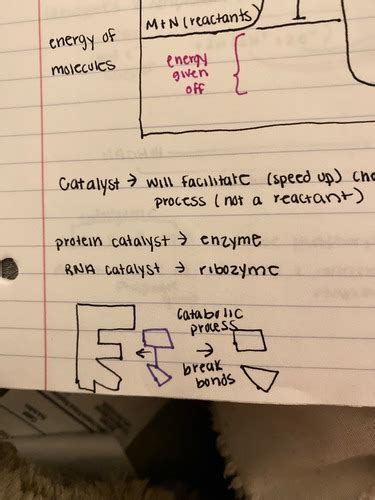 M+N (reactants)
energy of
molecules
energy
given
off
Catalyst → will facilitate (speed up) che
process (not a reactant)
protein catalyst → enzyme
RNA catalyst → ribozyme
catabolic
process
→
break
bonds